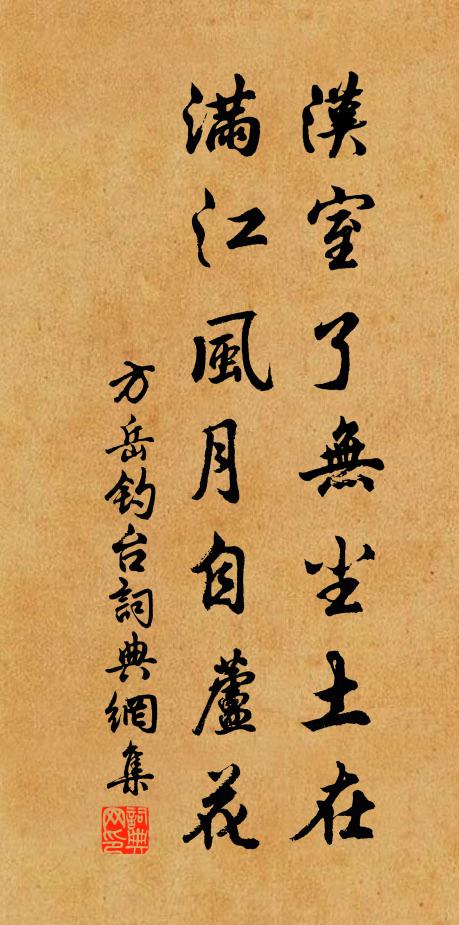 漢室了無尘土在
滿江風月自蘆花
方岳钓台詞典網集
詞典网印